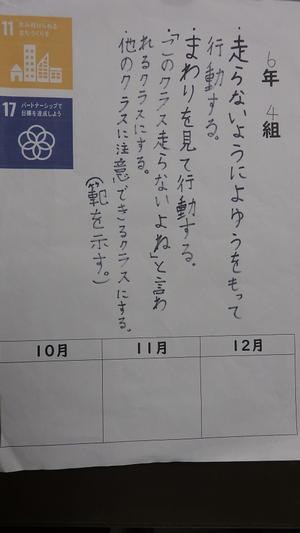 11 住み続けられる
まちづくりを
17 パートナーシップで
目標を達成しよう
6年 4組
・走らないようによゆうをもって
行動する。
・まわりを見て行動する。
・「このクラス走らないよね」と言わ
れるクラスにする。
・他のクラスに注意できるクラスにする。
(範を示す。)
10月 11月 12月